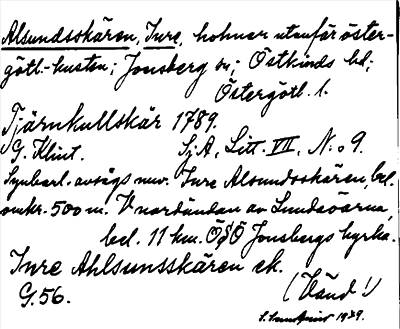 Alsundsskären, Inre, holmar utanför öster-
götl.-kusten; Jonsberg sn; Östkinds hd;
Östergötl. l.
Tjärnkullskär 1789.
G. Klint. Sj.A, Litt. VII, N:o 9.
Synbarl. avses nuv. Inre Alsundsskären, bel.
omkr. 500 m. V nordändan av Lundaöarna,
bel. 11 km. ÖSÖ Jonsbergs kyrka.
Inre Ahlsunsskären ek.
G. 56. (Vänd!)
1939.